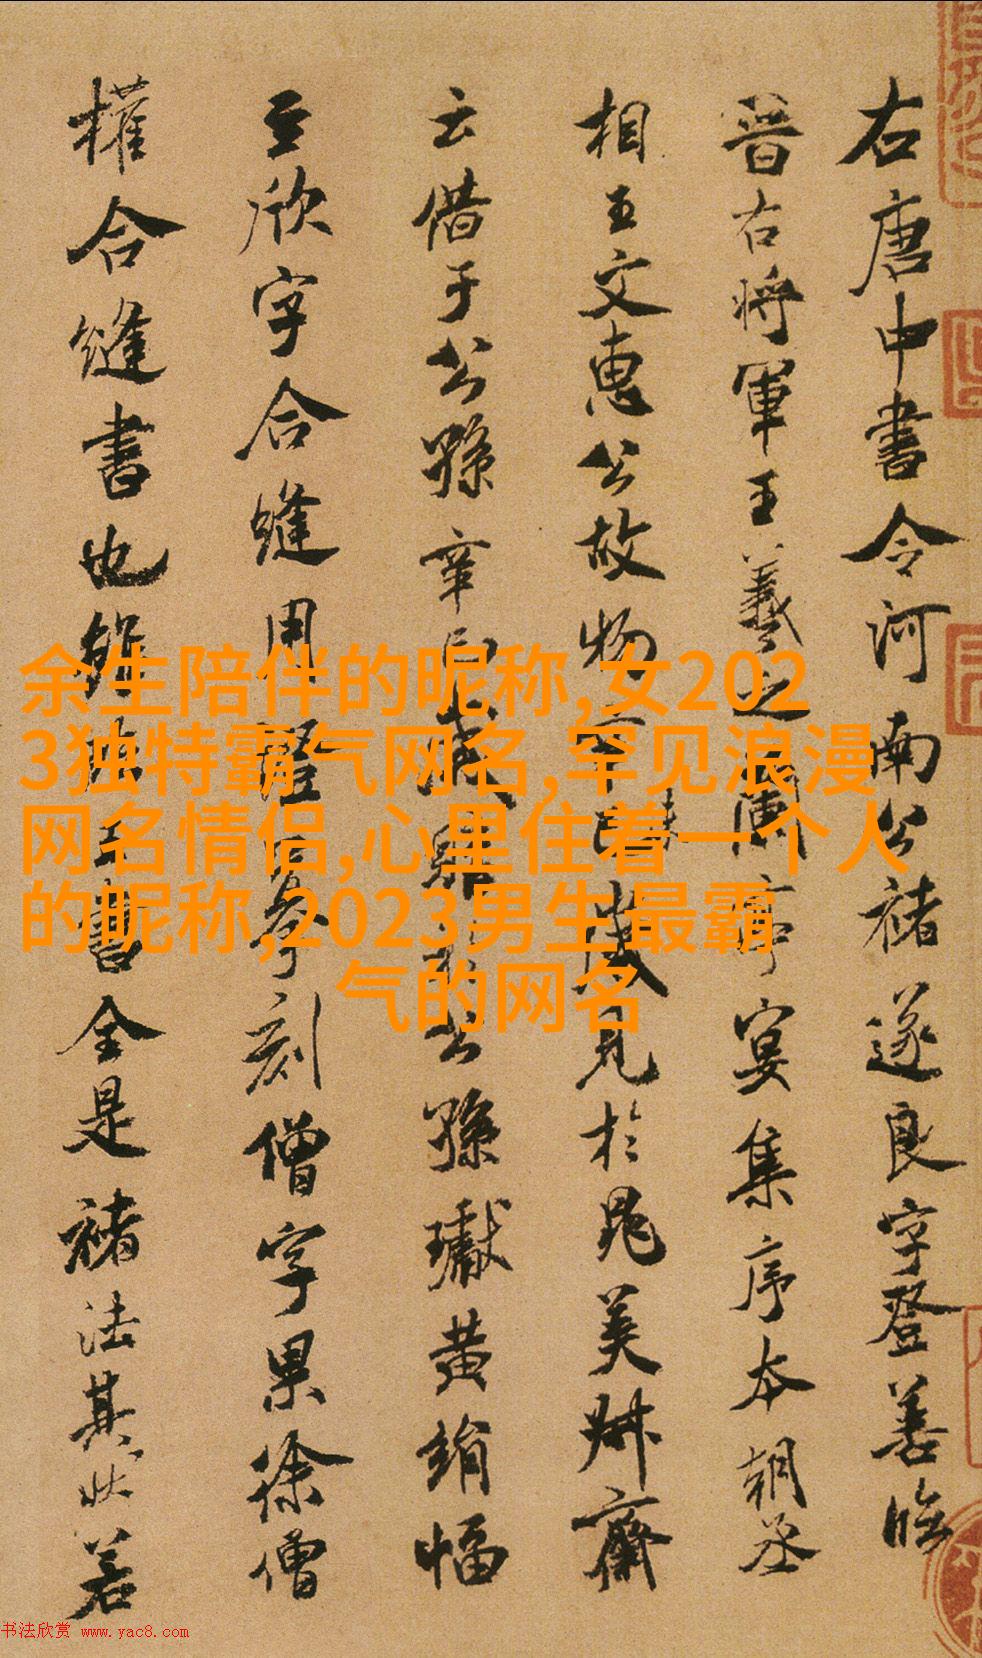 右唐中書令河南公褚遂良字登善臨
晉右將軍王羲之蘭亭宴集序本朝丞
相王文惠公故物辛未歲見於晁美叔齋
云借于公孫辛巳歲公孫巘黃絹幅
至欣字合縫用證刻僧字果徐僧
權合縫書也雖臨王書全是褚法其狀若
余生陪伴的昵称,女202
3独特霸气网名,罕见浪漫
网名情侣,心里住着一个人
的昵称,2023男生最霸
气的网名
书法欣赏 www.yac8.com